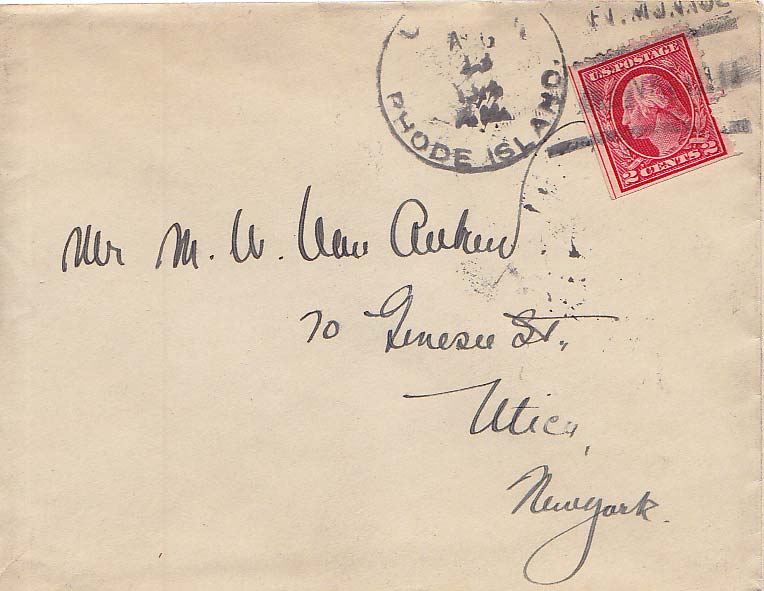 FT. MONROE
RHODE ISLAND.
U.S. POSTAGE
2 CENTS 2
Mr M. W. Van Auken
70 Genesee St.,
Utica,
New York.